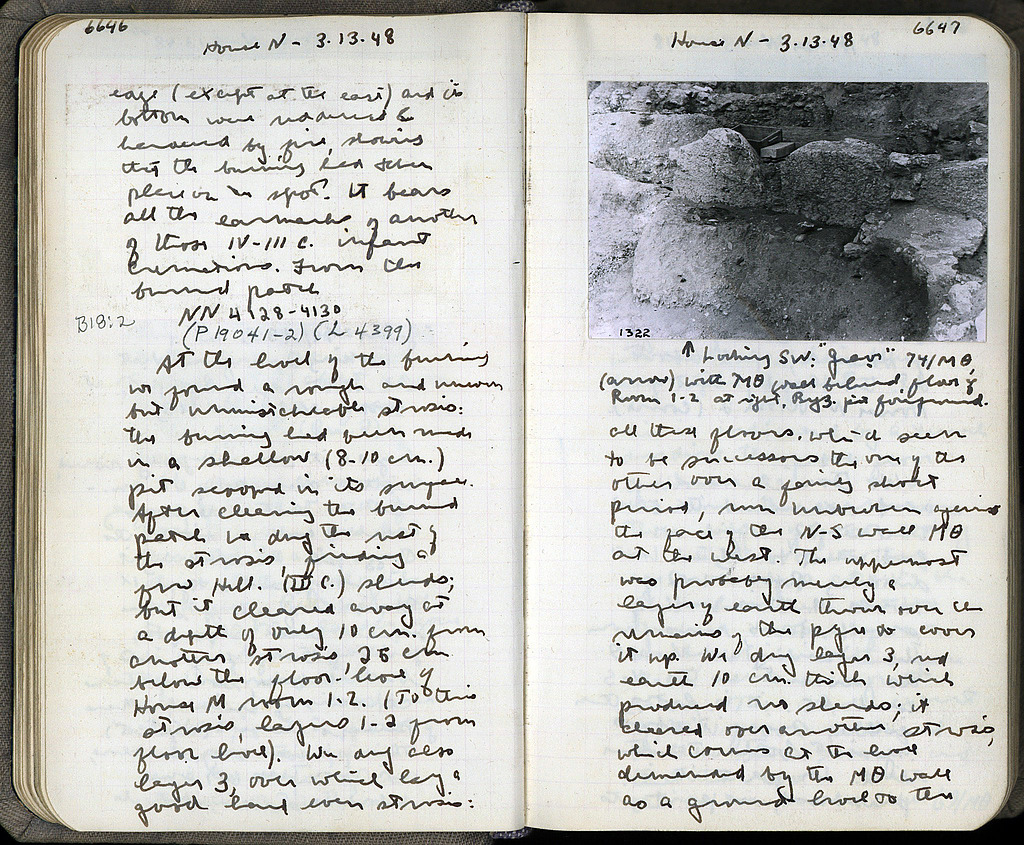 6646
House N - 3.13.48
edge (except at the east) and its
bottom were reddened &
hardened by fire, showing
that the burning had taken
place on the spot. It bears
all the earmarks of another
of those IV-III c. infant
cremations. From the
burned patch
NN 4128-4130
B18:2
(P 19041-2) (L 4399)
At the level of the burning
we found a rough and uneven
but unmistakeable strosis:
the burning had been made
in a shallow (8-10 cm.)
pit scooped in its surface.
After clearing the burned
patch we dug the rest of
the strosis, finding a
few Hell. (III C.) sherds;
but it cleared away at
a depth of only 10 cm. from
another strosis, 28 cm
below the floor-level of
House M room 1-2. (To this
strosis, layers 1-2 from
floor level). We dug also
layer 3, over which lay a
good hard even strosis:
6647
House N - 3.13.48
1322
↑ Looking SW. "Grave" 74/ΜΘ,
(arrow) with ΜΘ wall behind, floor of
Room 1-2 at right, Byz. pit foreground.
all these floors, which seem
to be successors the one of the
other over a fairly short
period, run unbroken against
the face of the N-S wall ΜΘ
at the west. The uppermost
was probably merely a
layer of earth thrown over the
remains of the pyre to cover
it up. We dug layer 3, red
earth 10 cm. thick which
produced no sherds; it
cleared over another strosis,
which comes at the level
demanded by the ΜΘ wall
as a ground level to the